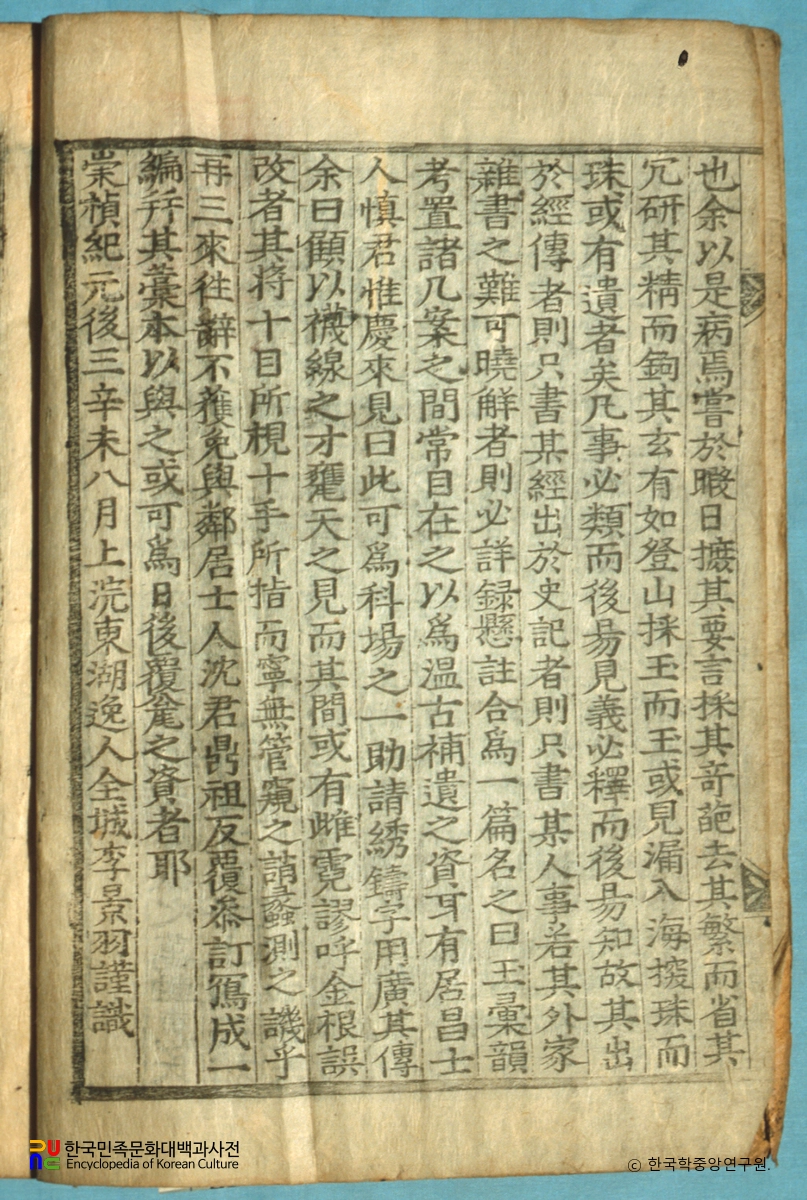 也余以是病焉嘗於暇日摭其要言採其奇葩去其繁而省其
冗硏其精而鉤其玄有如登山採玉而玉或見漏入海探珠而
珠或有遺者矣凡事必類而後易見義必釋而後易知故其出
於經傳者則只書某經出於史記者則只書某人事若其外家
雜書之難可曉解者則必詳錄懸註合爲一篇名之曰玉彙韻
考置諸几案之間常目在之以爲溫古補遺之資耳有居昌士
人愼君惟慶來見曰此可爲科場之一助請綉鑄字用廣其傳
余曰顧以襪線之才甕天之見而其間或有雌霓謬呼金根誤
改者其將十目所視十手所指而寧無管窺之誚蠡測之譏乎
再三來往辭不獲免與鄰居士人沈君鼎祖反覆叅訂寫成一
編弁其藁本以與之或可爲日後覆瓿之資者耶
崇禎紀元後三辛未八月上浣東湖逸人全城李景羽謹識
한국민족문화대백과사전
Encyclopedia of Korean Culture
ⓒ 한국학중앙연구원.